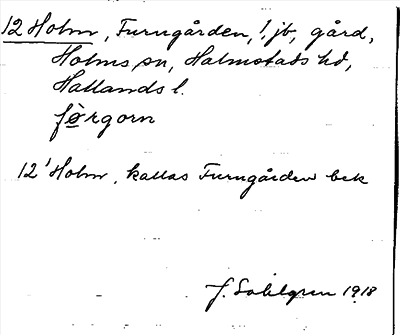 12 Holm, Furugården, 1, jb, gård,
Holms sn, Halmstads hd,
Hallands l.
fø̀rgorn
12¹ Holm, kallas Furugården bek
J. Sahlgren 1918